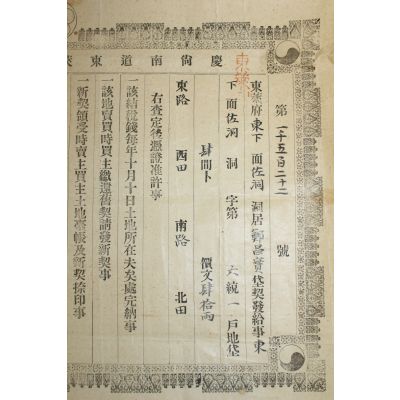 慶尙南道東萊
東萊
第一千五百二十二號
東萊府東下面佐洞洞居鄭昌贊垈契發給事東
下面佐洞洞字第六統一戶地垈
肆間卜價文肆拾兩
東路西田南路北田
右査定後憑證准許事
一該結稅錢每年十月十日土地所在夫矣處完納事
一該地賣買時買主繳還舊契請發新契事
一新契領受時賣主買主土地臺帳及新契捺印事